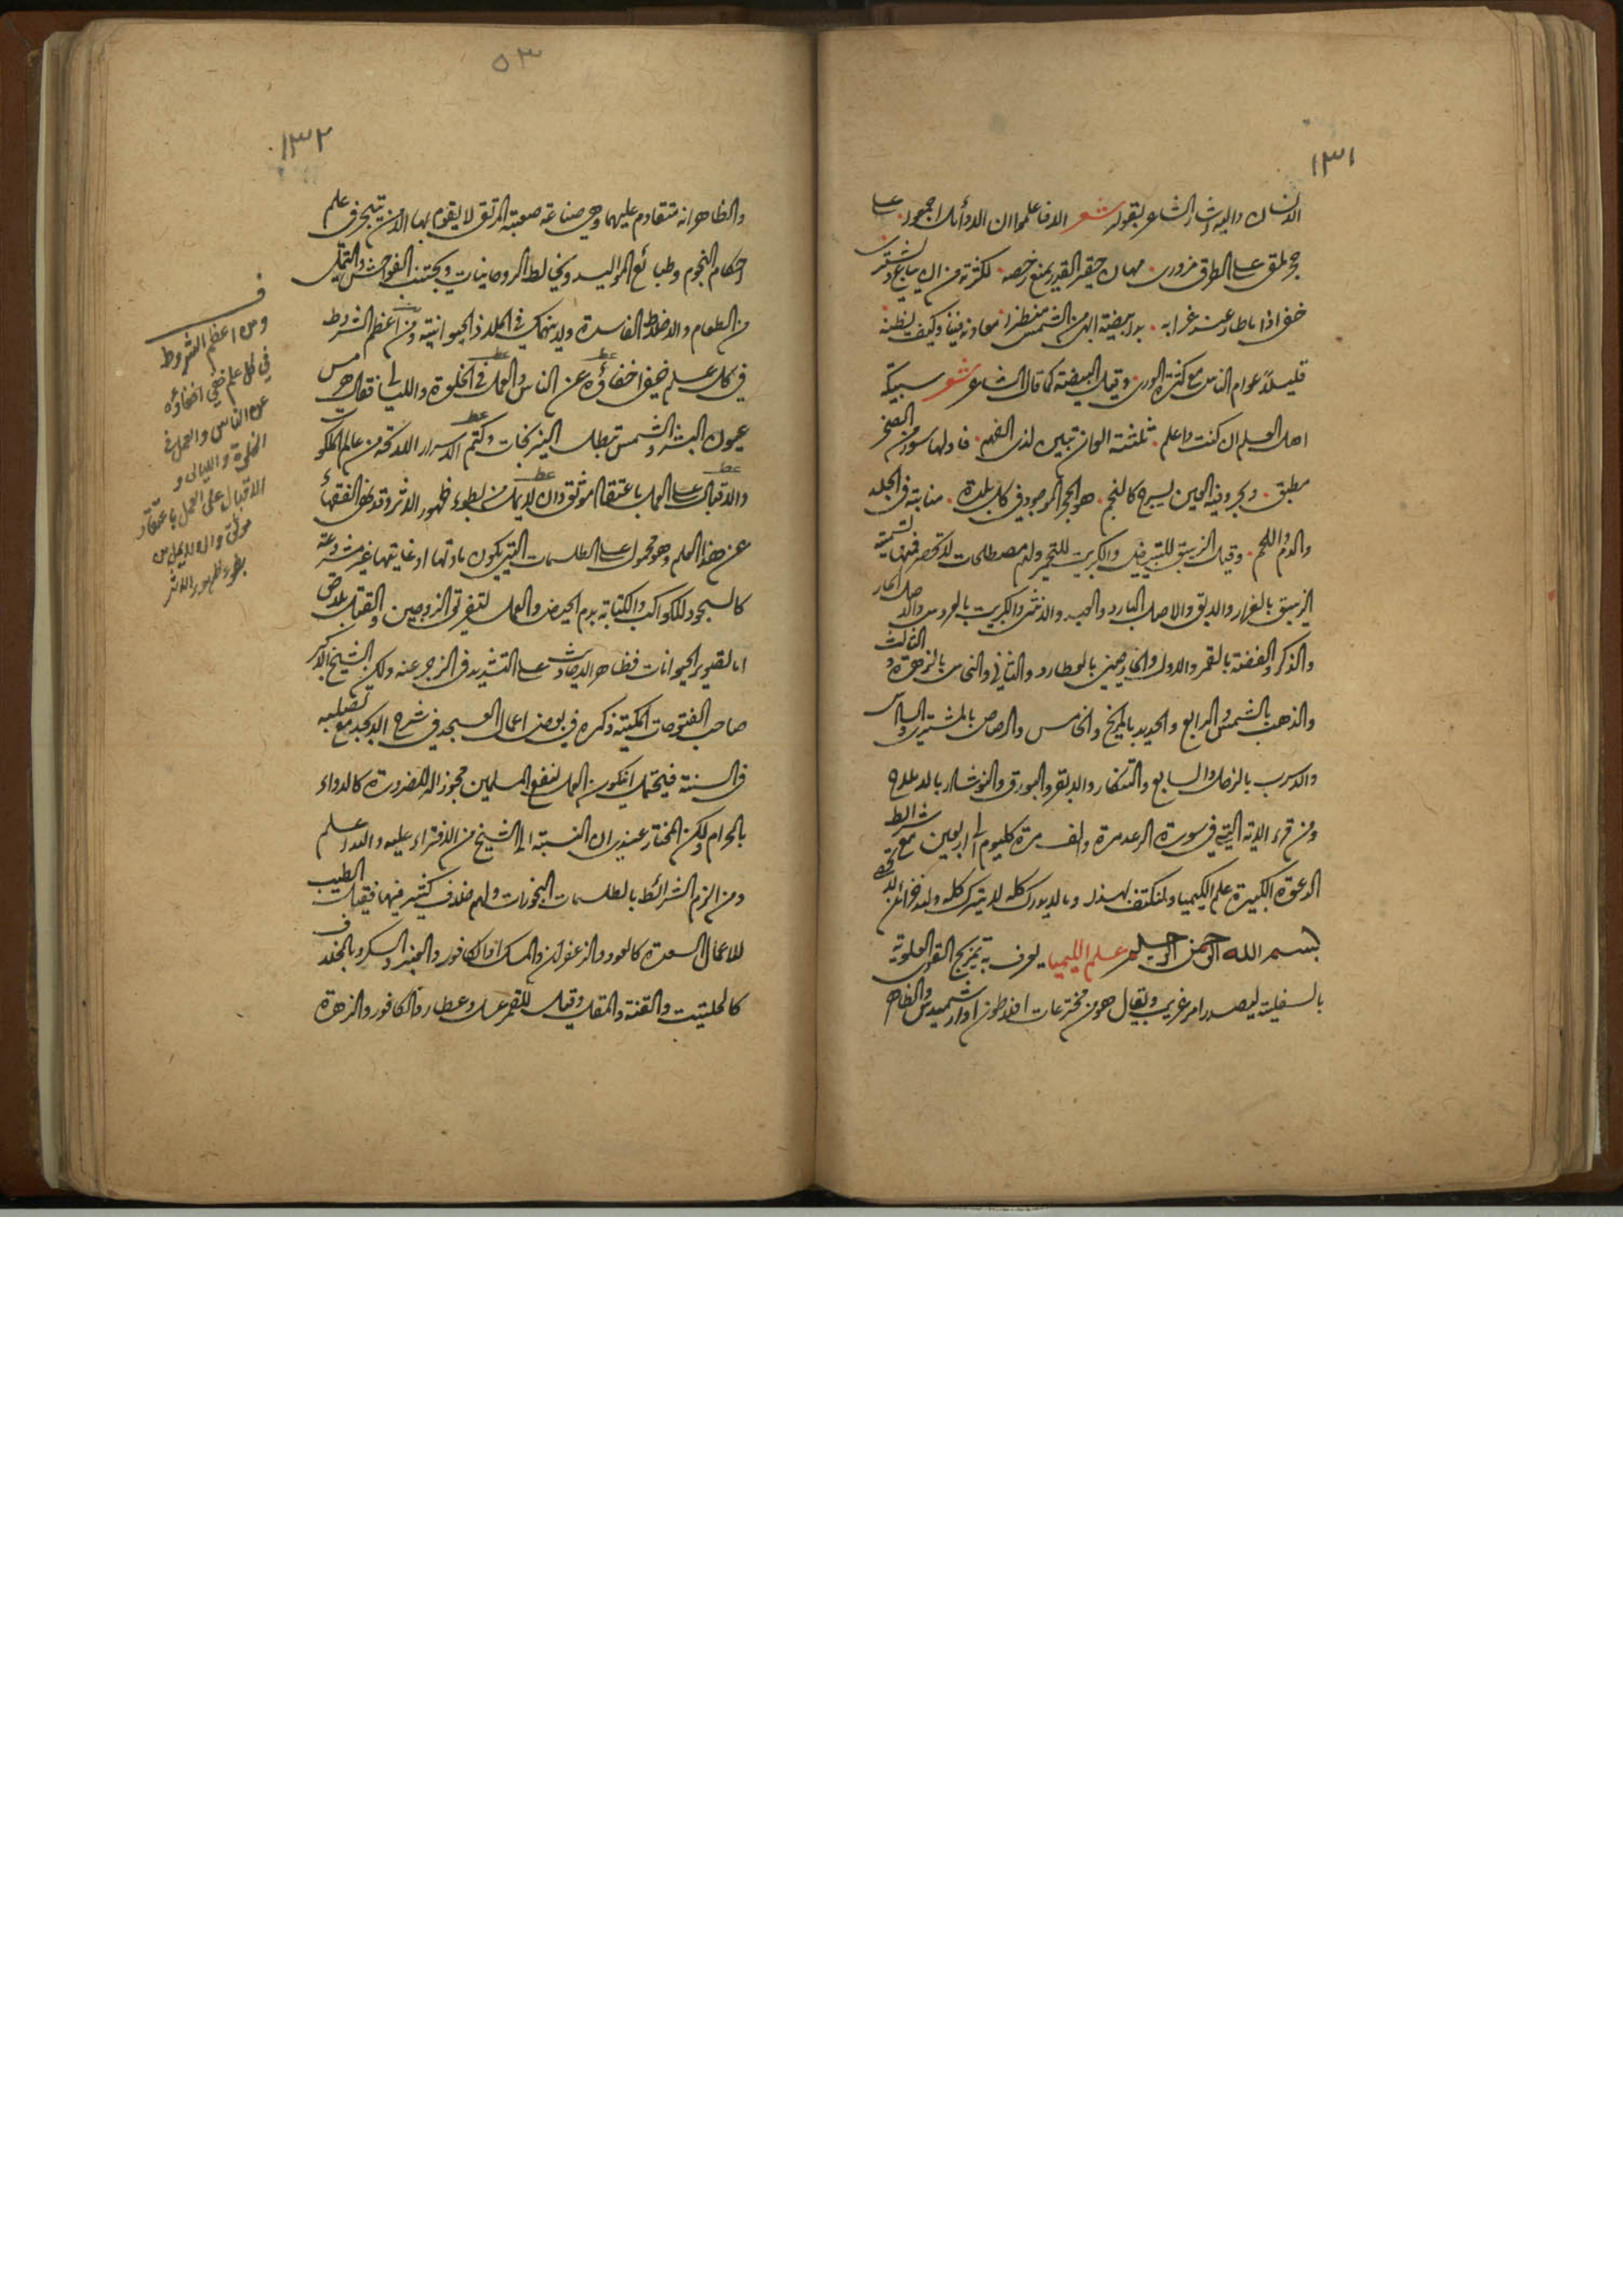 ١٣١
الانسان واليه اشار الشاعر بقوله شعر الا فاعلموا ان الاوائل اجمعوا على
حجر ملقى على الطرق مزورى مهان حقير القدر يمنع رخصه لكثرته من ان يباع ويشترى
خفى اذا ما طار عنه غرابه بدا بيضة ابهى من الشمس منظرا معادنه فينا وكيف يظنه
قليلاً عوام الناس مع كثرة الورى وقيل البيضة كما قال الشاعر شعر سبيكة
اهل العلم ان كنت واعلم ثلثة الوان تبين لذى الفهم فاولها سور من الصخر
مطبق وبحر وفيه العين يسرج كالنجم هو الحجر الموجود فى كل بلدة منابته فى الجلد
والدم واللحم وقيل الزيبق للتبييض والكبريت للتحمير ولهم مصطلحات لا تحصر فمنها تسمية
الزيبق بالفرار والابق والاصل البارد والعبد والانثى والكبريت بالعروس والاصل الحار
والذكر والفضة بالقمر والاول والخارصين بالعطارد والثانى والنحاس بالزهرة والثالث
والذهب بالشمس والرابع والحديد بالمريخ والخامس والرصاص بالمشترى والسادس
والاسرب بالزحل والسابع والتنكار والابقر والبورق والنوشادر بالاملاح
ومن قرء الاية التى فى سورة الرعد مرة والف مرة كل يوم الى اربعين مع شرائط
الدعوة الكبيرة علم الكيميا ولنكتف بهذا وما لا يدرك كله لا يترك كله
بسم الله الرحمن الرحيم علم الليميا يعرف به تمزيج القوى العلوية
بالسفلية ليصدر امر غريب ويقال هو من مخترعات افلاطون او ارشميدس والظاهر
٥٣
١٣٢
والظاهر انه متقادم عليهما وهى صناعة صعبة المرتقى لا يقوم بها الا من تبحر فى علم
احكام النجوم وطبائع المواليد ويخالط الروحانيات ويجتنب الفواحش والتملى
من الطعام والاخلاط الفاسدة ولا ينهمك فى الملاذ الحيوانية ومن اعظم الشروط
فى كل علم خفى اخفاؤه عن الناس والعمل فى الخلوة والليالى فقال هرمس
عيون البشر والشمس تبطل النيرنجات وكتم الاسرار اللائحة من عالم الملكوت
والاقبال على العمل باعتقاد موثق وان لا يمل من بطوء ظهور الاثر وقد نهى الفقهاء
عن هذا العلم وهو محمول على الطلسمات التى يكون مادتها او غايتها غير مشروعة
كالسجود للكواكب والكتابة بدم الحيض والعمل لتفريق الزوجين والقتل بلا حق
اما تصوير الحيوانات فظاهر الاحاديث على التشديد فى الزجر عنه ولكن الشيخ الاكبر
صاحب الفتوحات المكية ذكره فى بعض اعمال العسجد فى شرح الابجد مع تصلبه
فى السنة فيحتمل ان يكون العمل لنفع المسلمين مجوزا له للضرورة كالدواء
بالحرام ولكن المختار عندى ان النسبة الى الشيخ من الافتراء عليه والله اعلم
ومن الزم الشرائط بالطلسمات البخورات ولهم خلاف كثير فيها فقيل الطيب
للاعمال السعدة كالعود والزعفران والمسك والكافور والعنبر والسكر وبالخلاف
كالحلتيت والقنة والمقل وقيل للقمر عسل وعطارد الكافور والزهرة
ف
ومن اعظم الشروط
فى كل علم خفى اخفاؤه
عن الناس والعمل فى
الخلوة والليالى و
الاقبال على العمل باعتقاد
موثق وان لا يمل من
بطوء ظهور الاثر